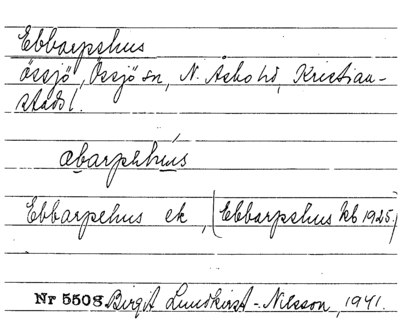 Ebbarpshus
Össjö, Össjö sn, N. Åsbo hd, Kristian-
stads l.
abarpshús
Ebbarpshus ek, (Ebbarpshus kb 1925.)
Nr 5508 Birgit Lundkvist-Nilsson, 1941.